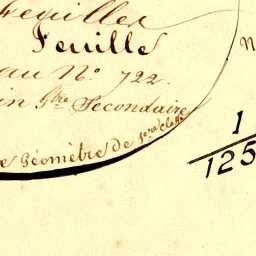 Feuilles
Feuille
au N.º 722.
in G.tre Secondaire
e Géomètre de 1.ere classe
N
1
125